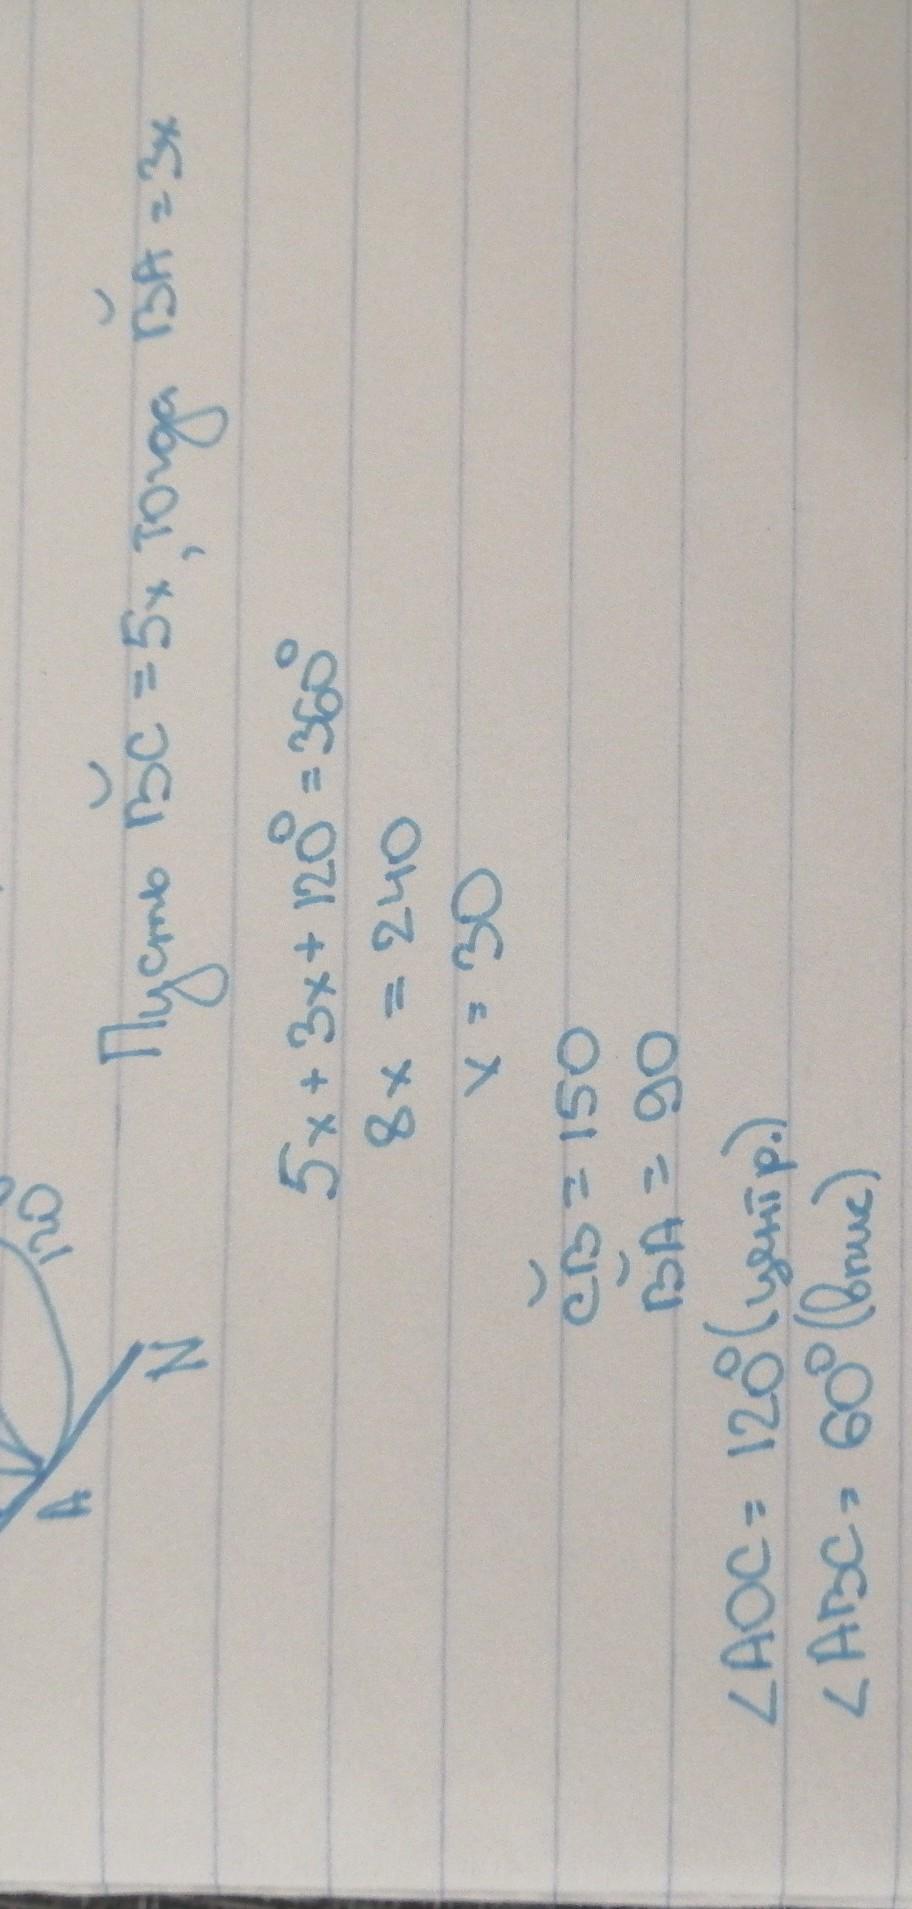 120
N
A
Пусть B͝C = 5x, тогда B͝A = 3x
5x + 3x + 120° = 360°
8x = 240
x = 30
C͝B = 150
B͝A = 90
∠AOC = 120° (центр.)
∠ABC = 60° (впис)